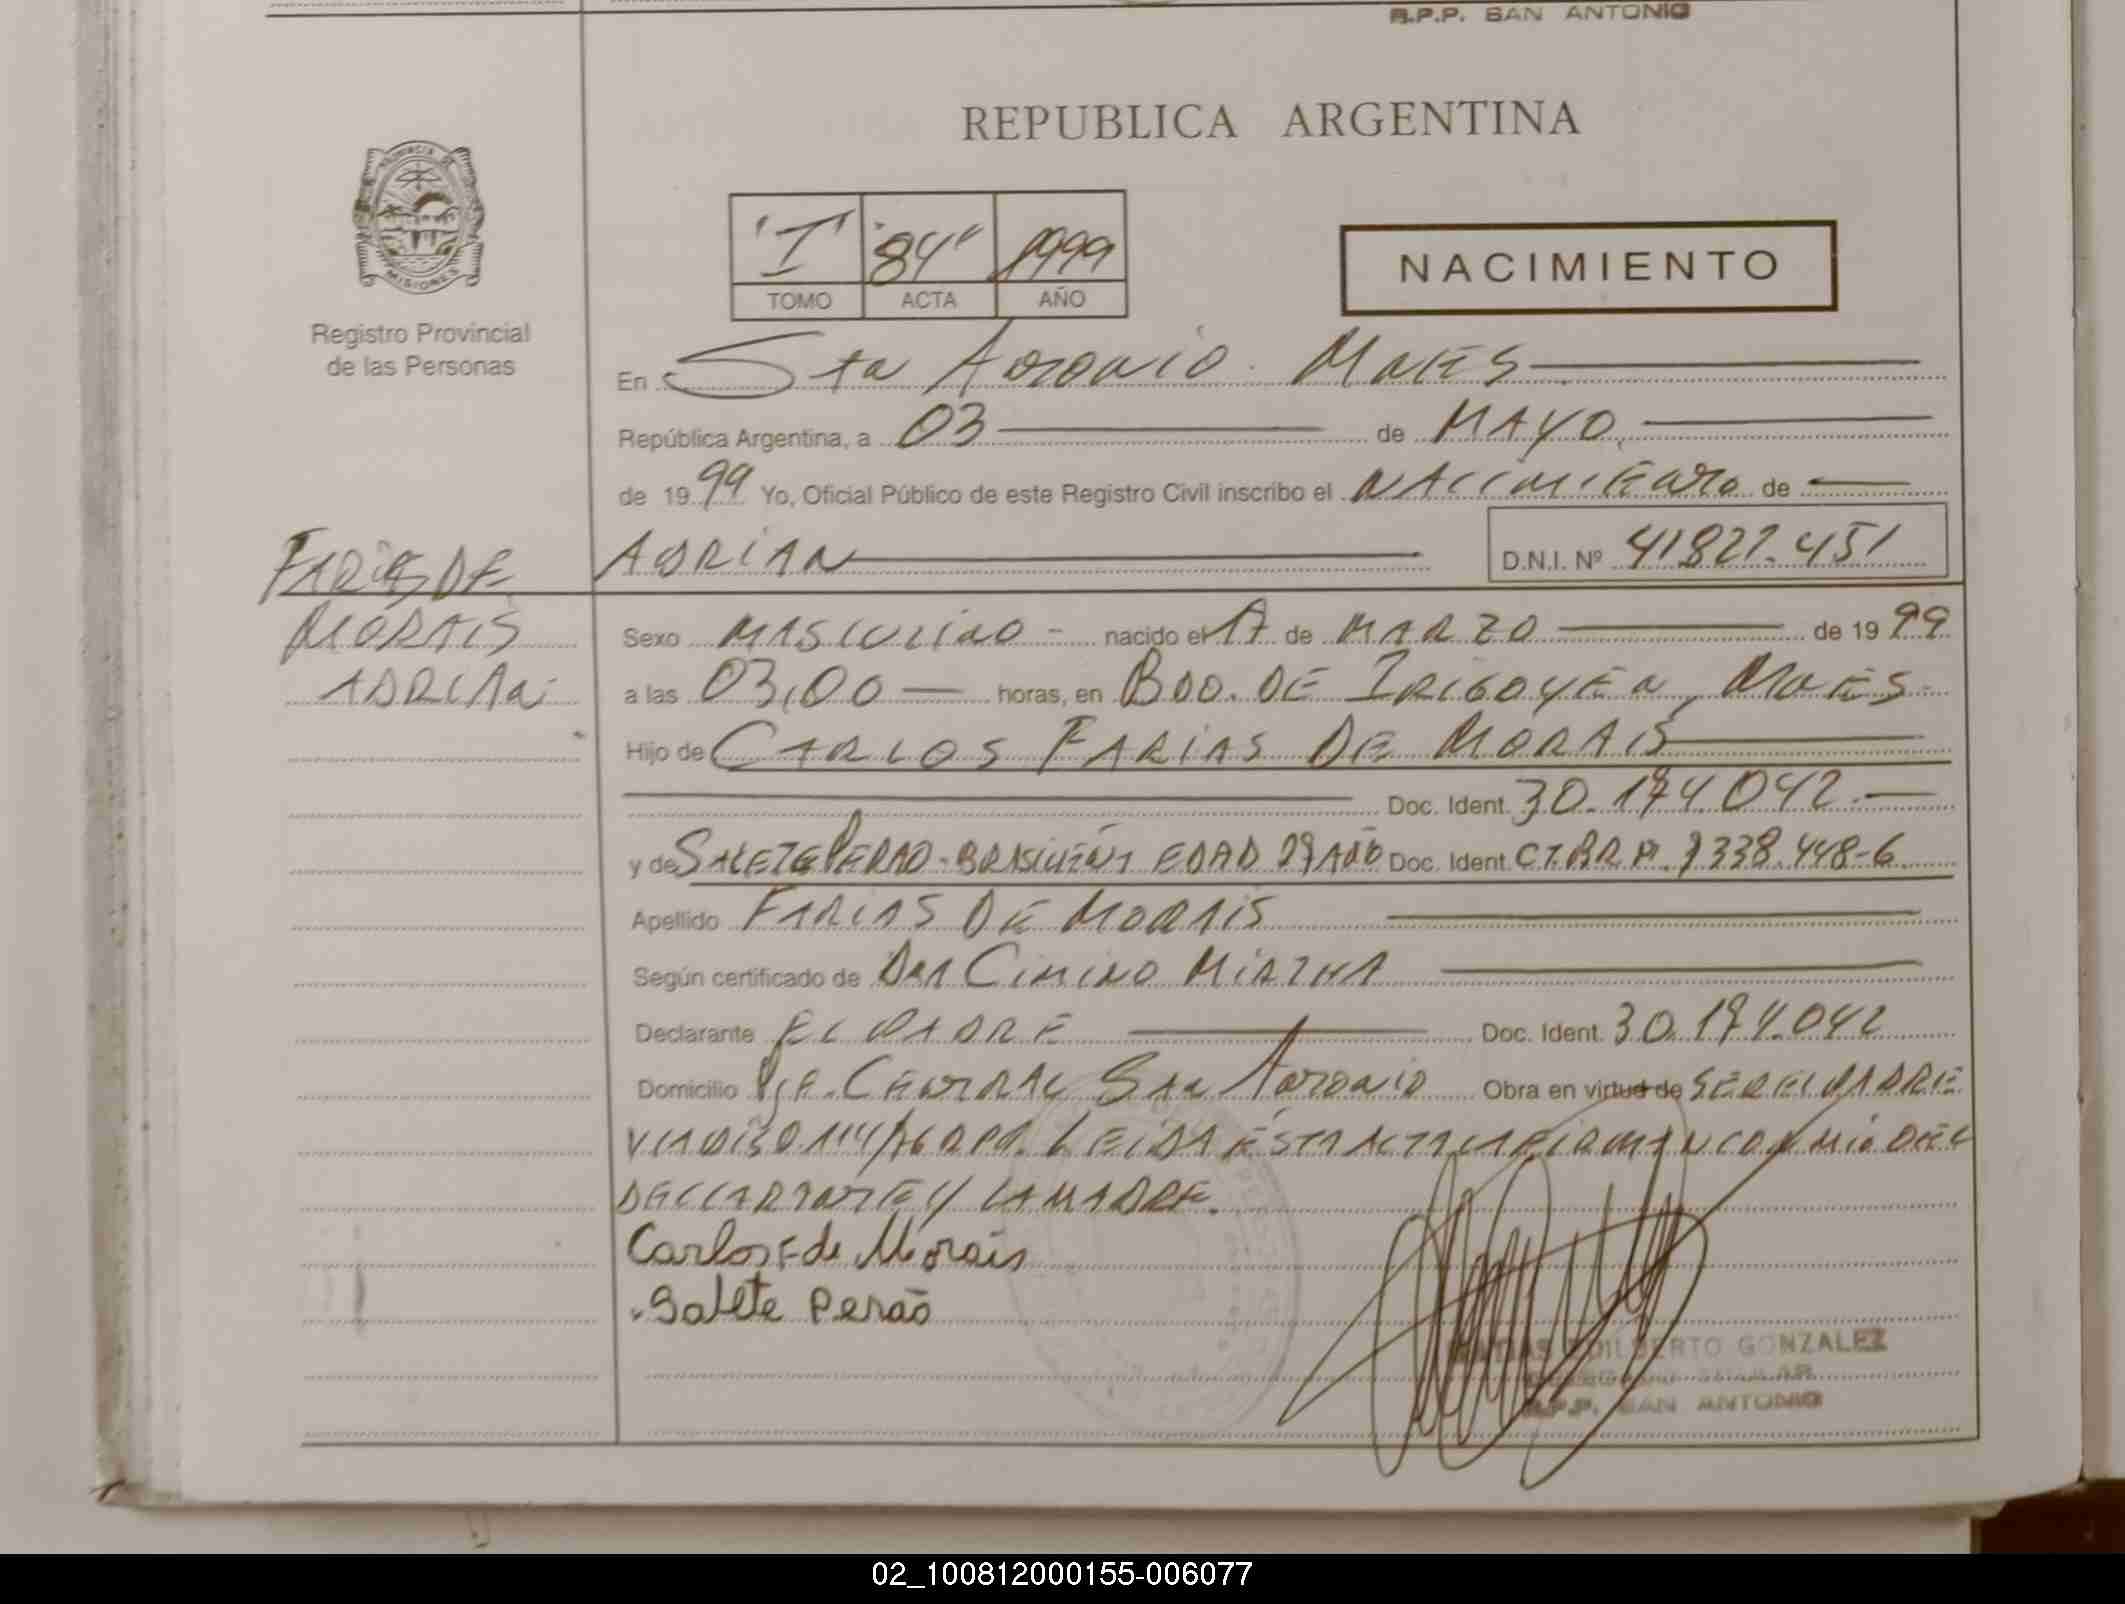 R.P.P. SAN ANTONIO
REPUBLICA ARGENTINA
PROVINCIA DE
MISIONES
Registro Provincial
de las Personas
"I" "84" 1999
TOMO ACTA AÑO
NACIMIENTO
En Sta Antonio. Mnes
República Argentina, a 03 de MAYO
de 1999 Yo, Oficial Público de este Registro Civil inscribo el NACIMIENTO de
FARIAS DE
MORAIS
ADRIAN
ADRIAN D.N.I. Nº 41827.451
Sexo MASCULINO - nacido el 17 de MARZO de 1999
a las 03,00 horas, en BDO. DE IRIGOYEN, MNES-
Hijo de CARLOS FARIAS DE MORAIS
Doc. Ident. 30.174042.
y de SALETE PERAO - BRASILEÑA EDAD 29 AÑO Doc. Ident. 338.448-6
Apellido FARIAS DE MORAIS
Según certificado de DRA CIMINO MIRTHA
Declarante EL PADRE Doc. Ident. 30.174.042
Domicilio Pje. CENTRAL San Antonio Obra en virtud de SER EL PADRE
LEIDA ESTA ACTA LA FIRMAN CONMIGO EL
DECLARANTE Y LA MADRE.
Carlos F de Morais
Salete Perão
GONZALEZ
R.P.P. SAN ANTONIO
02_100812000155-006077